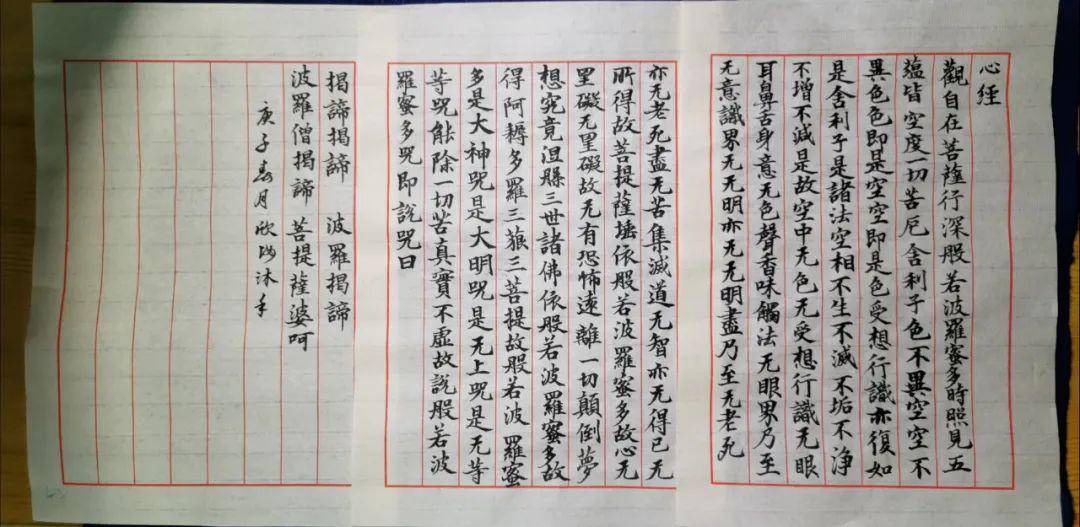 心经
觀自在菩薩行深般若波羅蜜多時照見五
蘊皆空度一切苦厄舍利子色不異空空不
異色色即是空空即是色受想行識亦復如
是舍利子是諸法空相不生不滅不垢不净
不增不減是故空中无色无受想行識无眼
耳鼻舌身意无色聲香味觸法无眼界乃至
无意識界无无明亦无无明盡乃至无老死
亦无老死盡无苦集滅道无智亦无得已无
所得故菩提薩埵依般若波羅蜜多故心无
罣礙无罣礙故无有恐怖遠離一切顛倒夢
想究竟涅槃三世諸佛依般若波羅蜜多故
得阿耨多羅三藐三菩提故般若波羅蜜
多是大神咒是大明咒是无上咒是无等
等咒能除一切苦真實不虛故說般若波
羅蜜多咒即說咒曰
揭諦揭諦 波羅揭諦
波羅僧揭諦 菩提薩婆呵
庚子春月欣 沐手